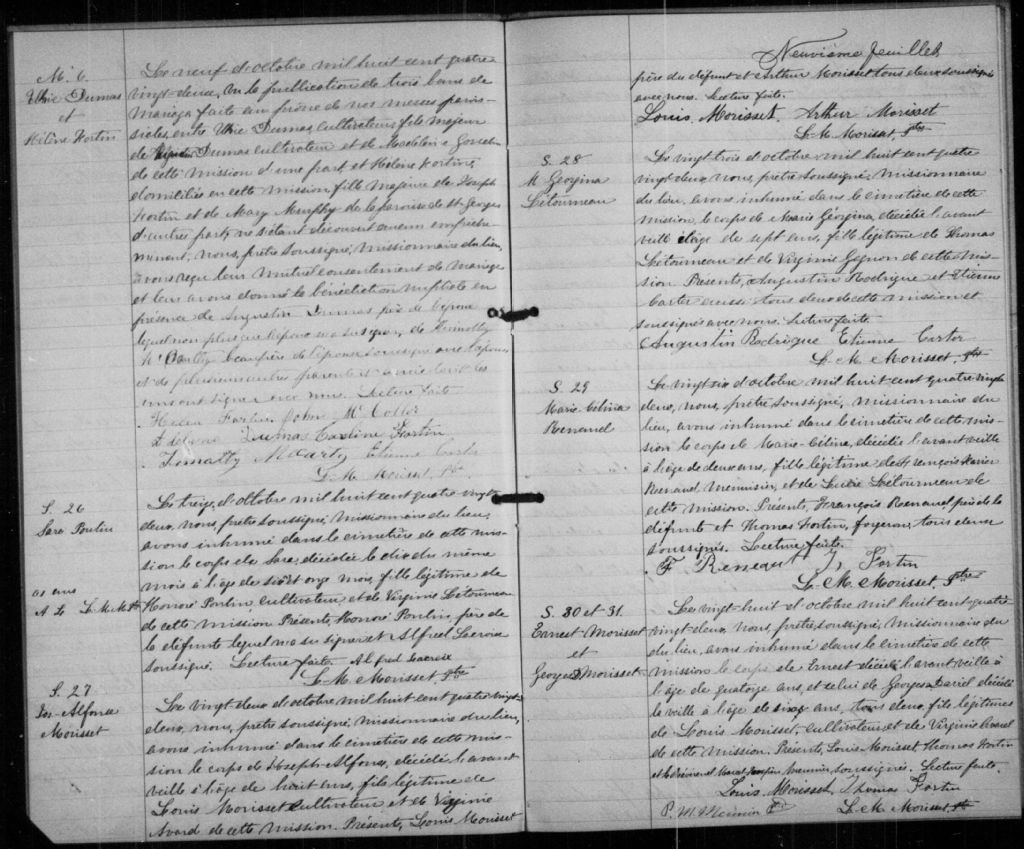 M. 6.
Dumas
et
Hélène Fortin
Le neuf d'octobre mil huit cent quatre
vingt-deux, Vu la publication de trois bans de
Mariage faite au prône de nos messes parois-
siales, entre Dumas, Cultivateur, fils majeur
de Dumas Cultivateur et de Madeleine Gosselin
de cette mission d'une part, et Helene Fortin,
domiciliée en cette mission, fille majeure de Joseph
Fortin et de Mary Murphy de la paroisse de St Georges
d'autre part, ne s'étant découvert aucun empêche-
ment, nous, prêtre soussigné, missionnaire du lieu,
avons reçu leur mutuel consentement de mariage
et leur avons donné la bénédiction nuptiale en
présence de Augustin Dumas père de l'époux
lequel non plus que l'époux n'a su signer, de Timmothy
McCarthy beaufrère de l'épouse soussigné avec l'épouse,
et de plusieurs autres parents et amis dont les
uns ont signer avec nous. Lecture faite
Fortin John McColler
Dumas Caroline Fortin
Timatty McCarty Etienne Carter
L. M. Morisset Ptre
S. 26
Sara Poulin
Le treize d'octobre mil huit cent quatre vingt
deux, nous, prêtre soussigné, missionnaire du lieu,
avons inhumé dans le cimetière de cette mis-
sion le corps de Sara, décédée le dix du même
mois à l'âge de onze mois, fille légitime de
Honoré Poulin, cultivateur et de Virginie Létourneau
de cette mission. Présents, Honoré Poulin, père de
la défunte lequel n'a su signer et Alfred Lacroix
soussigné. Lecture faite. Alfred Lacroix
L. M. Morisset Ptre
S. 27
Jos-Alfonse
Morisset
Le vingt deux d'octobre mil huit cent quatre vingt
deux, nous, prêtre soussigné, missionnaire du lieu,
avons inhumé dans le cimetière de cette mis-
sion le corps de Joseph-Alfonse, décédé l'avant
veille à l'âge de huit ans, fils légitime de
Louis Morisset Cultivateur et de Virginie
Avard de cette mission. Présents, Louis Morisset
Neuvième feuillet
père du défunt et Arthur Morisset tous deux soussignés
avec nous. Lecture faite.
Louis Morisset. Arthur Morisset
L. M. Morisset, Ptre
S. 28
M Georgina
Létourneau
Le vingt trois d'octobre mil huit cent quatre
vingt deux, nous, prêtre soussigné, missionnaire
du lieu, avons inhumé dans le cimetière de cette
mission, le corps de Marie Géorgina, décédée l'avant
veille à l'age de sept ans, fille légitime de Thomas
Létourneau et de Virginie Gagnon de cette mis-
sion. Présents, Augustin Rodrigue et Etienne
Carter aussi tous deux de cette mission et
soussignés avec nous. Lecture faite
Augustin Rodrigue Etienne Carter
L. M. Morisset, Ptre
S. 29
Marie Célina
Renaud
Le vingt six d'octobre mil huit cent quatre vingt
deux, nous, prêtre soussigné, missionnaire du
lieu, avons inhumé dans le cimetière de cette mis-
sion le corps de Marie-Céline, décédée l'avant veille
à l'âge de deux ans, fille légitime de François Xavier
Renaud Menuisier, et de Lucie Létourneau de
cette mission. Présents, François Renaud, père de la
défunte et Thomas Fortin, foyeron, tous deux
soussignés. Lecture faite.
F Reneaut T, Fortin
L. M. Morisset, Ptre
S. 30 et 31.
Ernest Morisset
et
Georges D Morisset
Le vingt-huit d'octobre mil huit cent-quatre
vingt-deux, Nous, prêtre soussigné, Missionnaire du
du lieu, avons inhumé dans le cimetière de cette
mission le corps de Ernest décédé l'avant veille à
l'âge de quatorze ans, et celui de Georges Daniel décédé
la veille à l'âge de ans, tous deux, fils légitimes
de Louis Morisset, Cultivateur et de Virginie Avard
de cette mission. Présents, Louis Morisset Thomas Fortin
et soussignés. Lecture faite.
Louis Morisset, Thomas Fortin
P. M. Meunier P L. M. Morisset Ptre